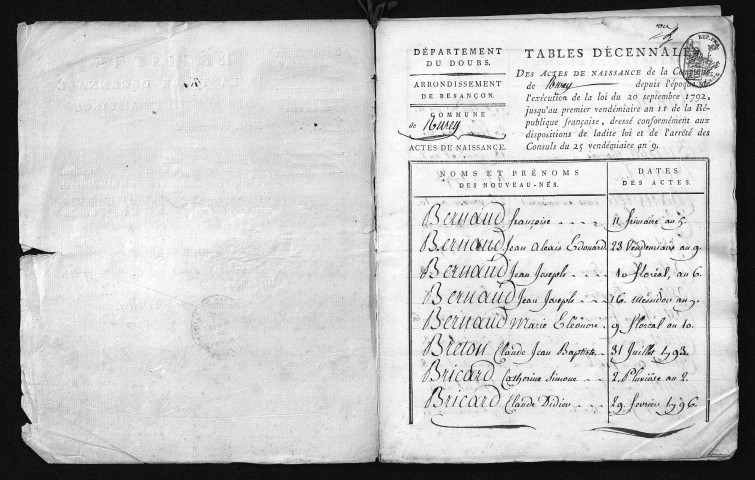 DÉPARTEMENT
DU DOUBS.
ARRONDISSEMENT
DE BESANÇON.
COMMUNE
de Rurey
ACTES DE NAISSANCE.
TABLES DÉCENNALES
DES ACTES DE NAISSANCE de la Commune
de Rurey depuis l'époque de
l'exécution de la loi du 20 septembre 1792,
jusqu'au premier vendémiaire an 11 de la Ré-
publique française, dressé conformément aux
dispositions de ladite loi et de l'arrêté des
Consuls du 25 vendémiaire an 9.
NOMS ET PRÉNOMS
DES NOUVEAU-NÉS.
DATES
DES ACTES.
Bernaud françoise 11 frimaire an 5.
Bernaud Jean Alexis Edouard 23 Vendemiaire an 9.
Bernaud Jean Joseph 10 floréal, an 6.
Bernaud Jean Joseph 16. messidor an 7.
Bernaud Marie Eléonore 9 floréal an 10.
Breton Claude Jean Baptiste 31 Juillet 1793.
Bricard Catherine Simone 2. Pluviôse an 2.
Bricard Claude Didier 29. fevrier 1796.